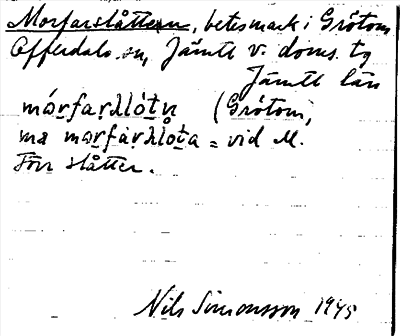 Morfarslåttern, betesmark i Grötom
Offerdals sn, Jämtl v. doms. tg
Jämtl län
mórfarʎót̲n̥ (Grötom,
ma morfarʎót̲a = vid M.
Förr slåtter.
Nils Simonsson 1945